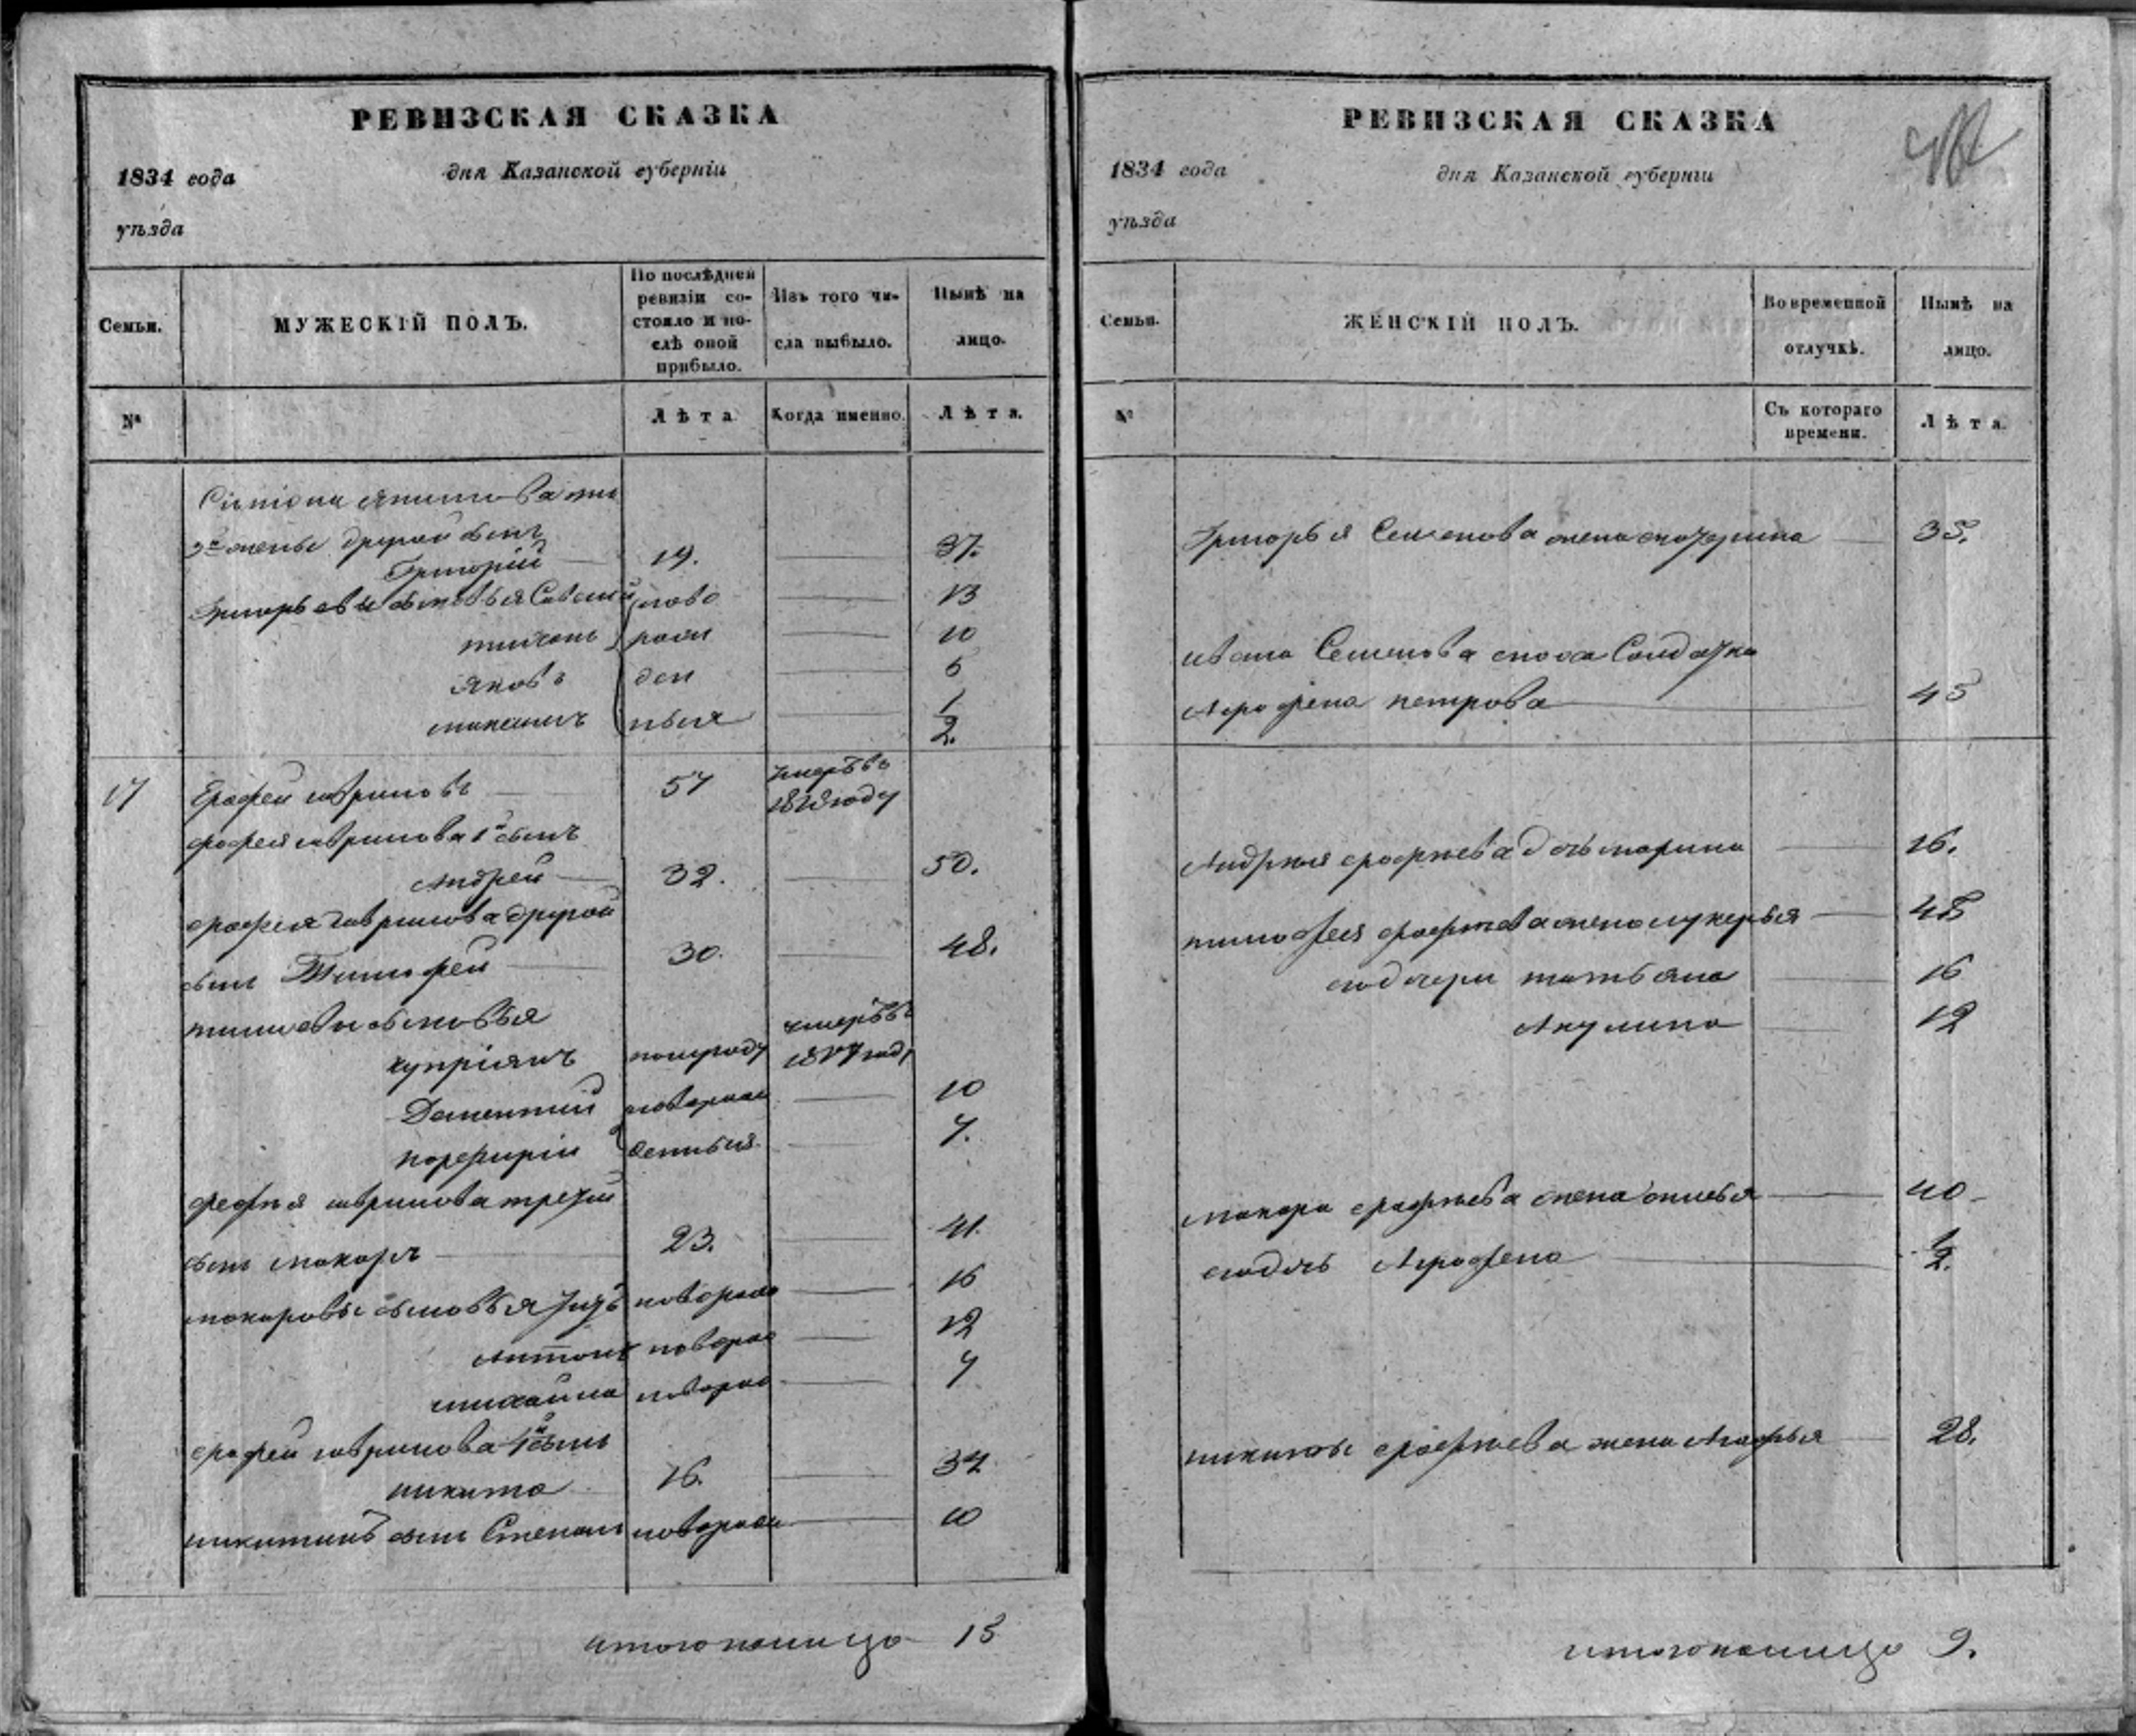 РЕВИЗСКАЯ СКАЗКА
1834 года дня Казанской губерніи
уѣзда
Семьи.
МУЖЕСКІЙ ПОЛЪ.
По послѣдней
ревизіи со-
стояло и по-
слѣ оной
прибыло.
Изъ того чи-
сла выбыло.
Нынѣ на
лицо.
№
Лѣта
Когда именно.
Лѣта.
другой сынъ
Григорій 19. 37.
Григорьевы сыновья Савелій ново 13
тихонъ рож 10
яковъ ден 5
максимъ ныя 1/2.
17 Ерофей гавриловъ 57 умеръ въ
1828 году
ерофея гаврилова 1й сынъ
Андрей 32. 50.
ерофея гаврилова другой
сынъ Тимофей 30. 48.
сыновья умеръ въ
купріянъ полугоду году
Дементій 10
порфирій 7.
ерофея гаврилова третій
сынъ макаръ 23. 41.
макаровы сыновья 16
Антонъ новорож 12
михайла новорож 7
ерофея гаврилова 4й сынъ
никита 16. 34
никитинъ сынъ Степанъ новорож 10
итого налицо 15
РЕВИЗСКАЯ СКАЗКА
1834 года дня Казанской губерніи
уѣзда
Семьи.
ЖЕНСКІЙ ПОЛЪ.
Во временной
отлучкѣ.
Нынѣ на
лицо.
№
Съ котораго
времени.
Лѣта.
Григорья Семенова жена катерина 35.
ивана Семенова сноха Солдатка
Аграфена петрова 45
Андрея ерофеева дочь марина 16.
тимофея ерофеева жена лукерья 48
дочери татьяна 16
Акулина 12
макара ерофеева жена 40
дочь Аграфена 1/2.
никиты ерофеева жена Агафья 28.
итого налицо 9.